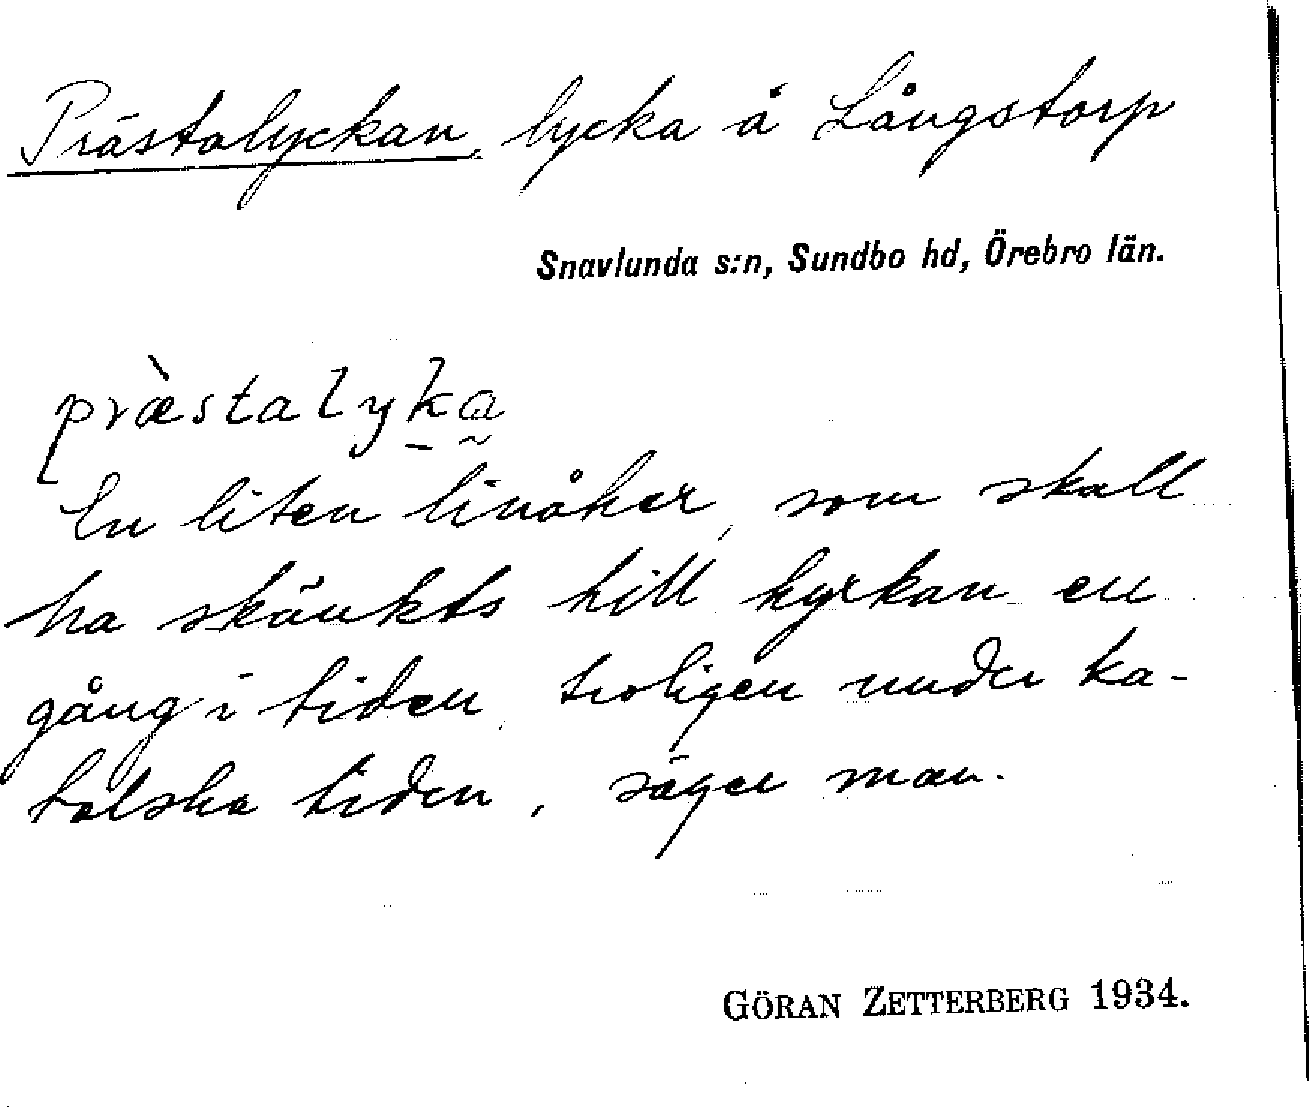 Prästalyckan, lycka å Långstorp
Snavlunda s:n, Sundbo hd, Örebro län.
[præ̀stalyk̠a̰
En liten linåker, som skall
ha skänkts till kyrkan en
gång i tiden, troligen under ka-
tolska tiden, säger man.
GÖRAN ZETTERBERG 1934.